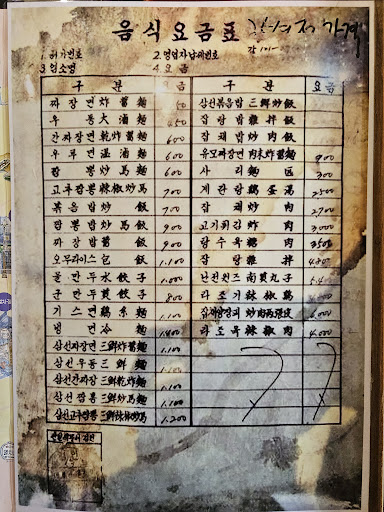 음식요금표
1. 허가번호 2. 영업자남례번호
3. 업소명 4. 요금
구분 요금 구분 요금
짜장면 炸醬麵 삼선볶음밥 三鮮炒飯
우동 大滷麵 450 잡탕밥 雜拌飯
간짜장면 乾炸醬麵 600 잡채밥 炒肉飯
우루면 溫滷麵 600 유모짜장면 肉末炸醬麵 900
짬뽕 炒馬麵 600 사리 麵 300
고추짬뽕 辣椒炒馬 700 계란탕 鷄蛋湯 2500
볶음밥 炒飯 700 잡채 肉 2700
짬뽕밥 炒馬飯 900 고기튀김 炸肉 3000
짜장밥 醬飯 900 탕수육 糖肉 3500
오무라이스 包飯 1.100 잡탕 雜拌
물만두 水餃子 1.000 난젼완즈 南煎丸子
군만두 煎餃子 800 라조기 辣椒鷄
기스면 鷄糸麵 1.100 炒肉両張皮 6.000
냉면 冷麵 1.400 라조육 辣椒肉 4.000
삼선짜장면 三鮮炸醬麵 1.100
삼선우동 三鮮麵
삼선간짜장 三鮮乾炸麵
삼선짬뽕 三鮮炒馬麵 1.100
삼선고추짬뽕 三鮮辣椒炒馬 1.200